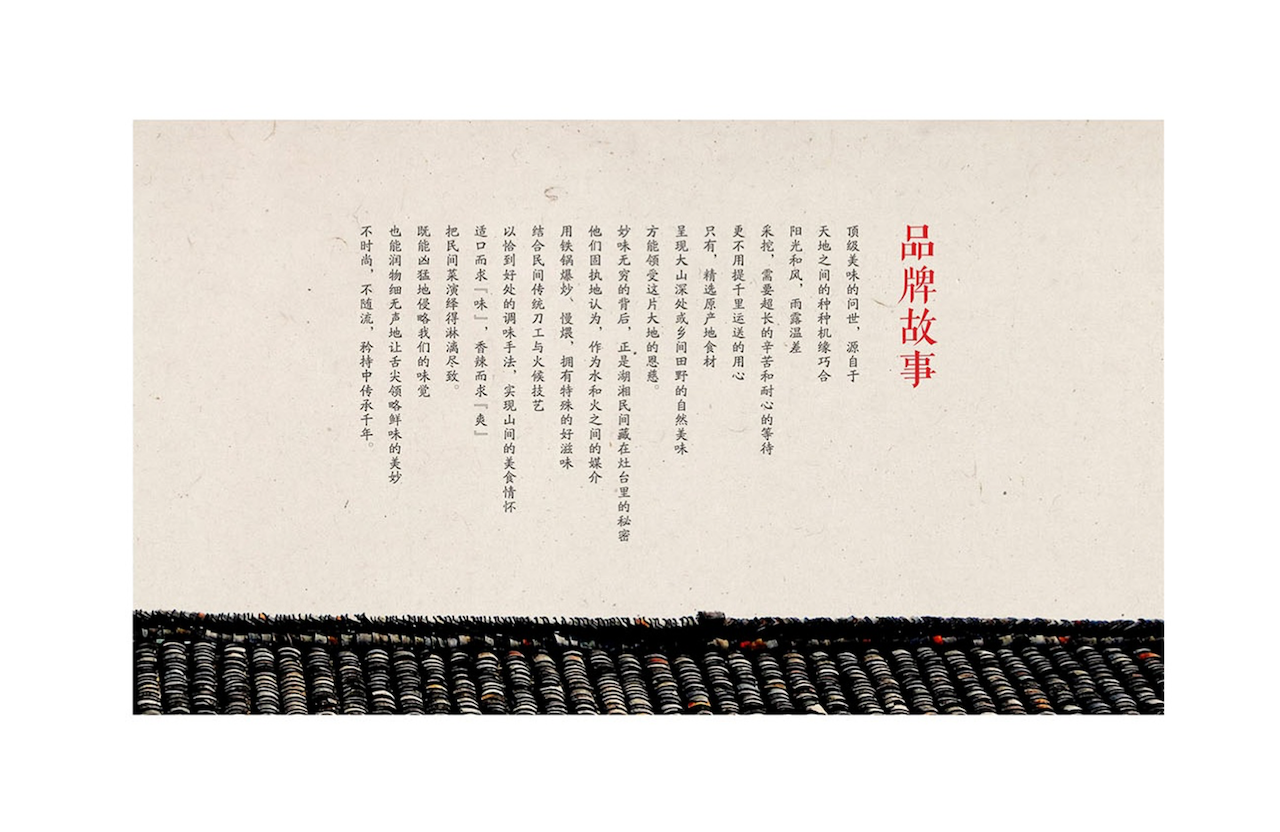 品牌故事
顶级美味的问世，源自于
天地之间的种种机缘巧合
阳光和风，雨露温差
采挖，需要超长的辛苦和耐心的等待
更不用提千里运送的用心
只有，精选原产地食材
呈现大山深处或乡间田野的自然美味
方能领受这片大地的恩慈。
妙味无穷的背后，正是湖湘民间藏在灶台里的秘密
他们固执地认为，作为水和火之间的媒介
用铁锅爆炒、慢煨，拥有特殊的好滋味
结合民间传统刀工与火候技艺
以恰到好处的调味手法，实现山间的美食情怀
适口而求『味』，香辣而求『爽』
把民间菜演绎得淋漓尽致。
既能凶猛地侵略我们的味觉
也能润物细无声地让舌尖领略鲜味的美妙
不时尚，不随流，矜持中传承千年。